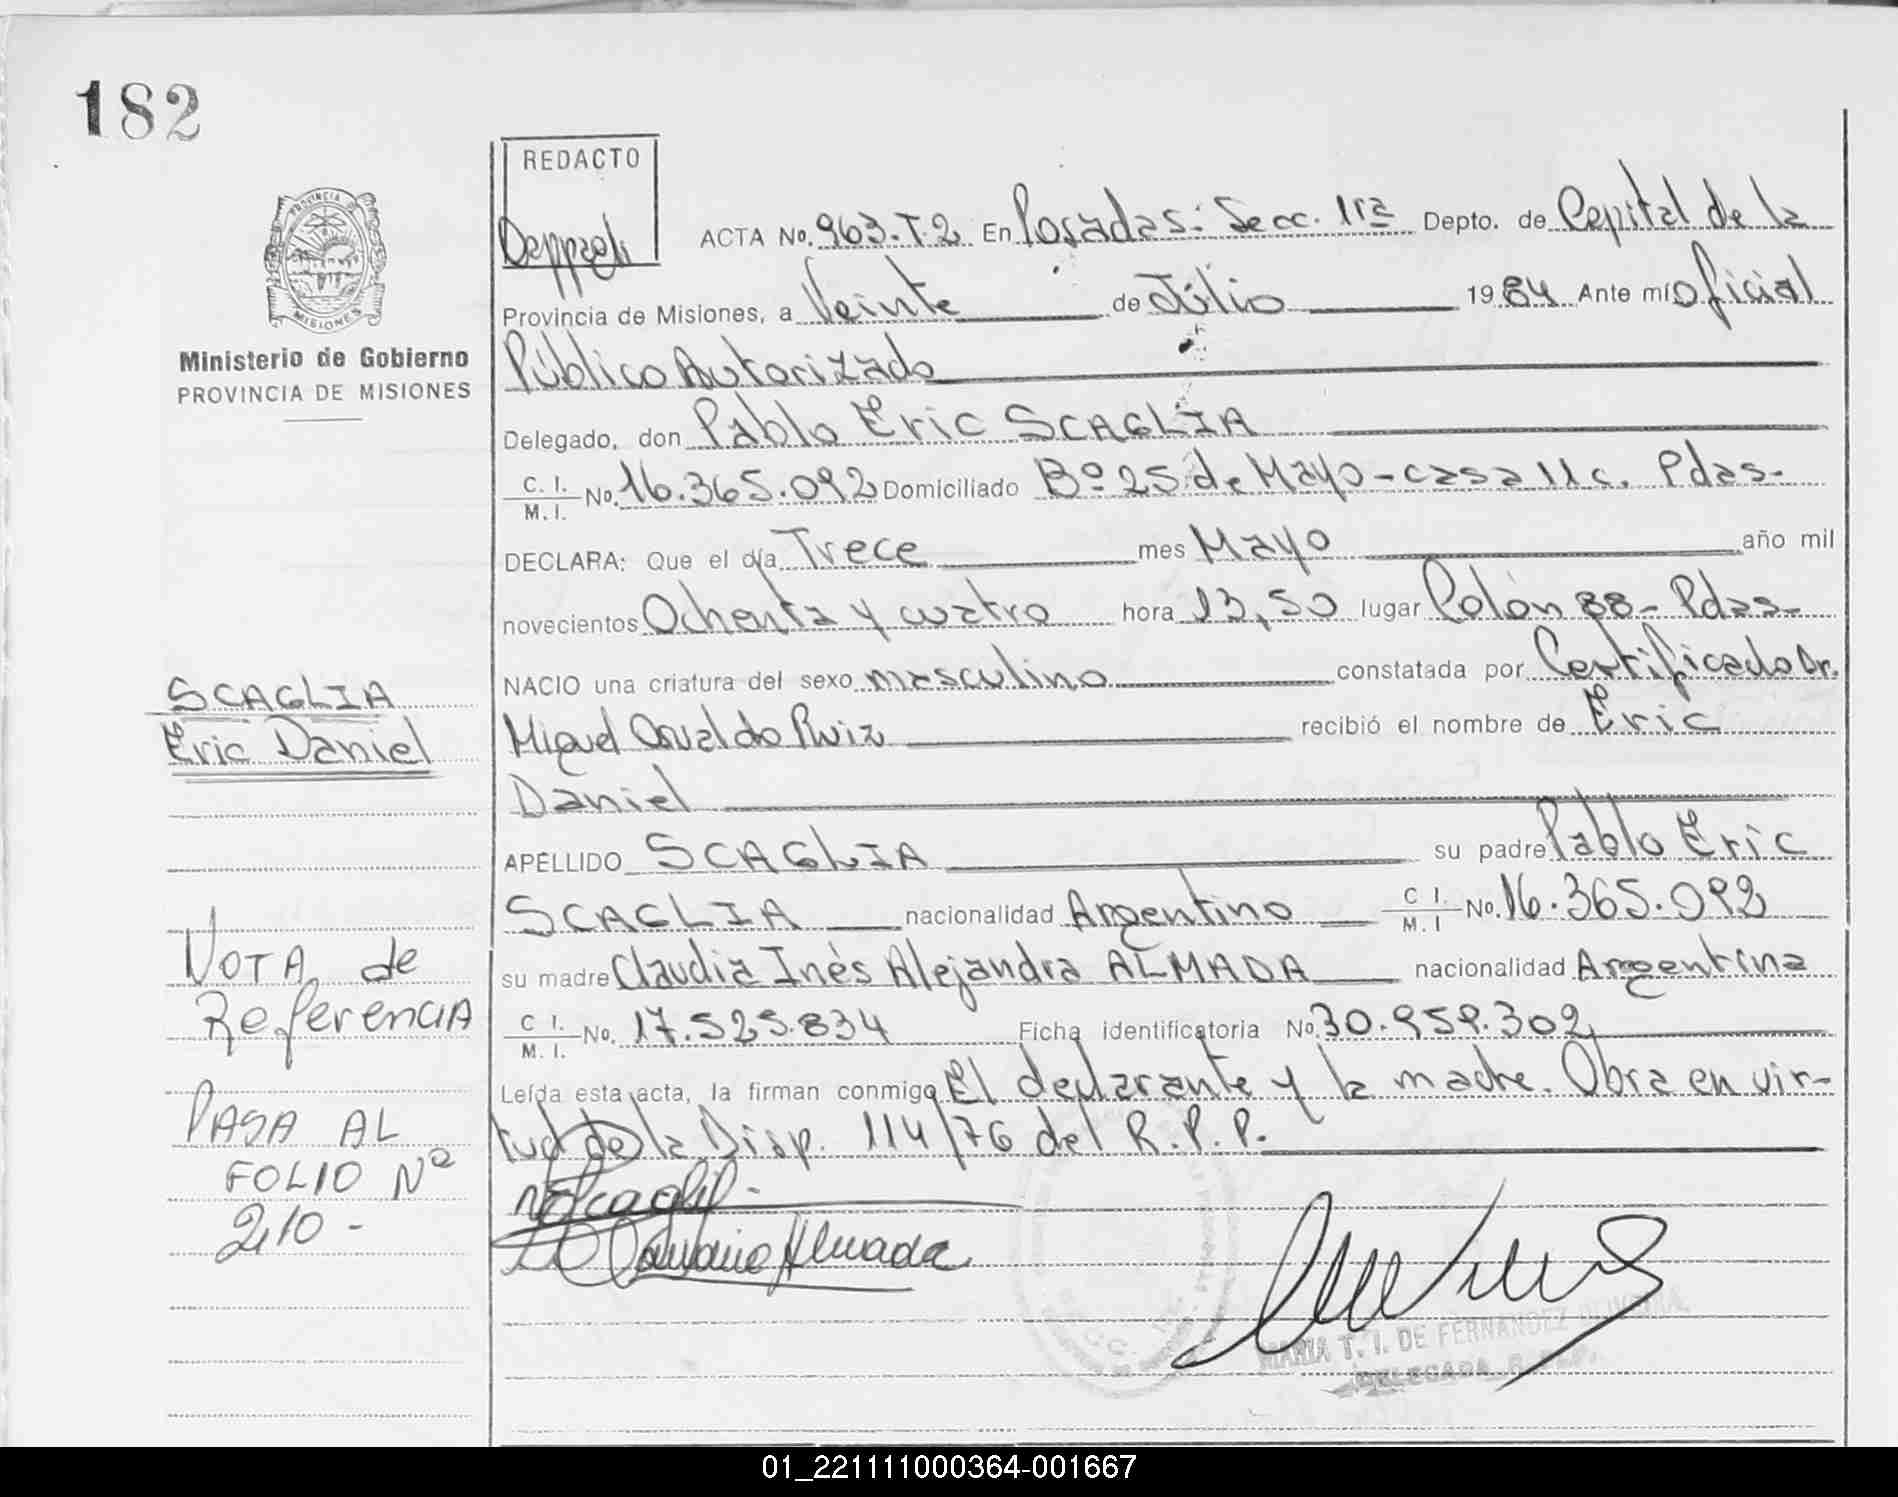 182
REDACTO
PROVINCIA DE
MISIONES
Ministerio de Gobierno
PROVINCIA DE MISIONES
ACTA No. 963-T.2 En Posadas: Secc. 1ra Depto. de Capital de la
Provincia de Misiones, a Veinte de Júlio 1984 Ante mí Oficial
Público Autorizado
Delegado, don Pablo Eric SCAGLIA
C. I. M. I. No. 16.365.092 Domiciliado Bº 25 de Mayo - casa 11 c. Pdas-
DECLARA: Que el día Trece mes Mayo año mil
novecientos Ochenta y cuatro hora 13,50 lugar Colón 88- Pdas-
NACIO una criatura del sexo masculino constatada por Certificado Dr.
Miguel Osvaldo Ruiz recibió el nombre de Eric
Daniel
APELLIDO SCAGLIA su padre Pablo Eric
SCAGLIA nacionalidad Argentino C I. M. I No. 16.365.092
su madre Claudia Inés Alejandra ALMADA nacionalidad Argentina
C I. M. I. No. 17.525.834 Ficha identificatoria No. 30.959.302
Leída esta acta, la firman conmigo El declarante y la madre. Obra en vir-
tud de la Disp. 114/76 del R.P.P.
SCAGLIA
Eric Daniel
NOTA de
Referencia
PASA AL
FOLIO Nº
210-
Almada
MARIA T. I. DE FERNANDEZ OLIVEIRA
DELEGADA
01_221111000364-001667